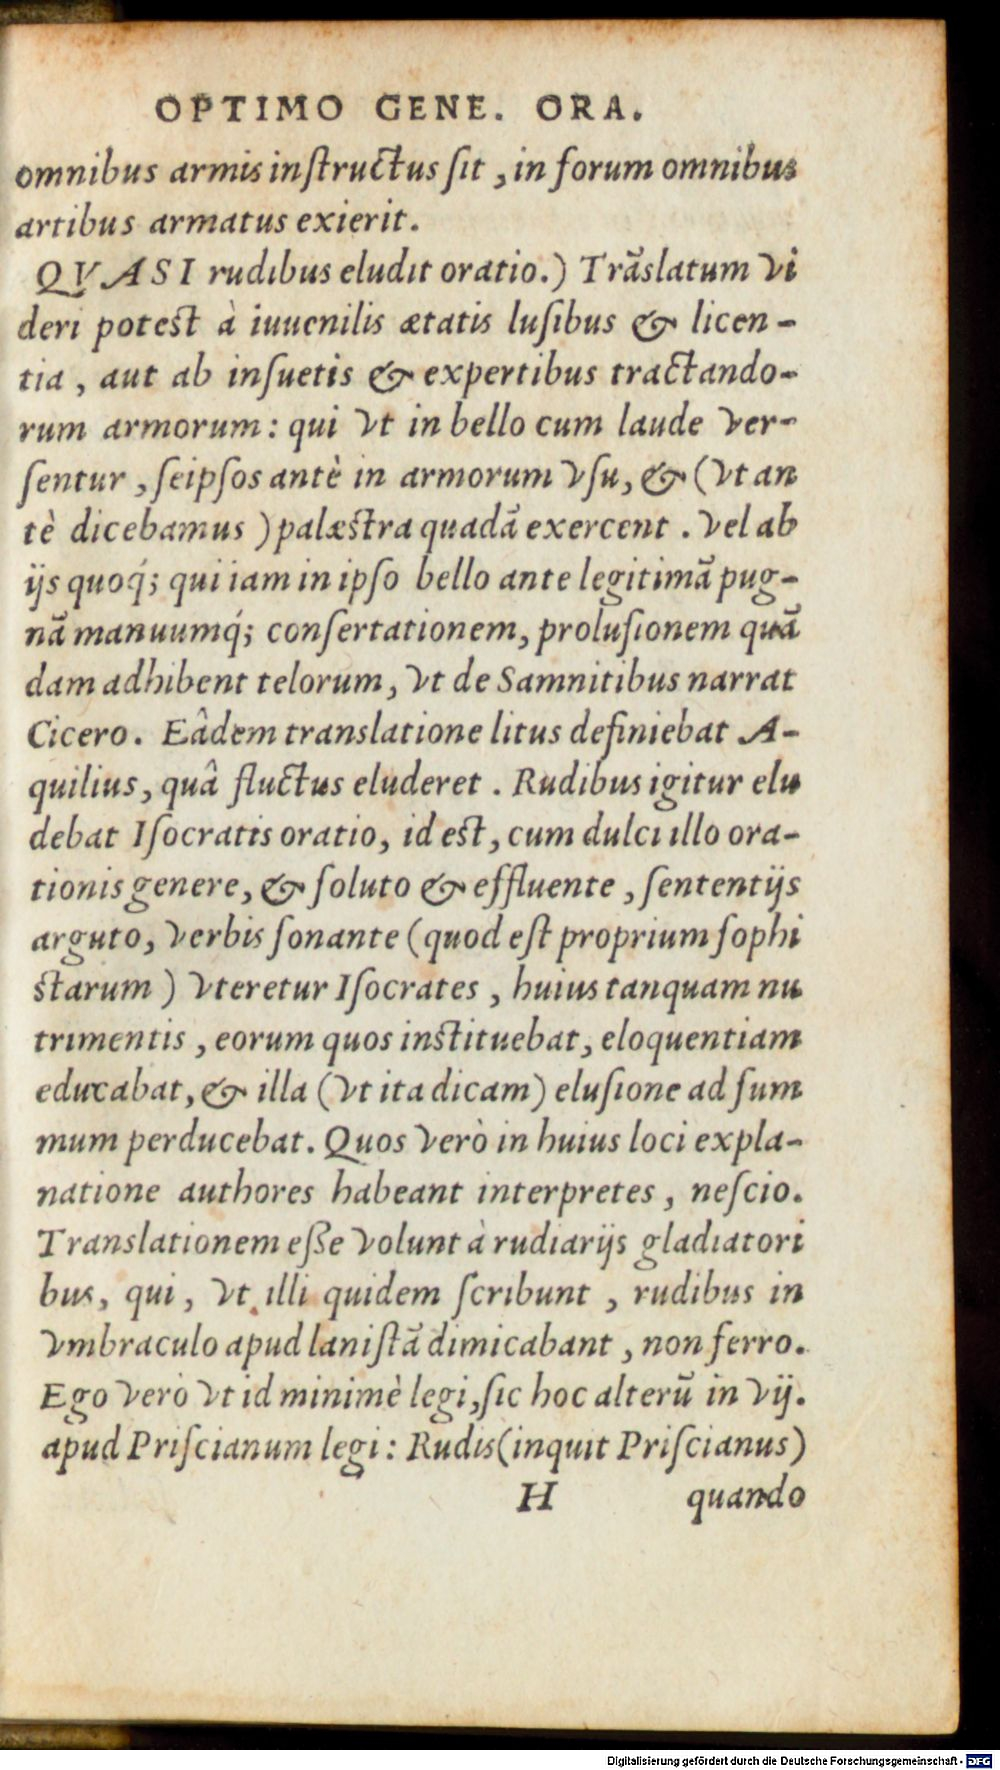 OPTIMO GENE. ORA.
omnibus armis inſtructus ſit, in forum omnibus
artibus armatus exierit.
QVASI rudibus eludit oratio.) Trãslatum vi
deri potest à iuuenilis ætatis luſibus & licen-
tia, aut ab inſuetis & expertibus tractando-
rum armorum: qui vt in bello cum laude ver-
ſentur, ſeipſos antè in armorum vſu, & (vt an
tè dicebamus) palæstra quadã exercent. vel ab
ijs quoq́; qui iam in ipſo bello ante legitimã pug-
nã manuumq́; conſertationem, proluſionem quã
dam adhibent telorum, vt de Samnitibus narrat
Cicero. Eâdem translatione litus definiebat A-
quilius, quâ fluctus eluderet. Rudibus igitur elu
debat Iſocratis oratio, id est, cum dulci illo ora-
tionis genere, & ſoluto & effluente, ſententijs
arguto, verbis ſonante (quod eſt proprium ſophi
starum) vteretur Iſocrates, huius tanquam nu
trimentis, eorum quos instituebat, eloquentiam
educabat, & illa (vt ita dicam) eluſione ad ſum
mum perducebat. Quos verò in huius loci expla-
natione authores habeant interpretes, neſcio.
Translationem eſſe volunt à rudiarijs gladiatori
bus, qui, vt illi quidem ſcribunt, rudibus in
vmbraculo apud laniſtã dimicabant, non ferro.
Ego verò vt id minimè legi, ſic hoc alterũ in vij.
apud Priſcianum legi: Rudis (inquit Priſcianus)
H quando
Digitalisierung gefördert durch die Deutsche Forschungsgemeinschaft - DFG